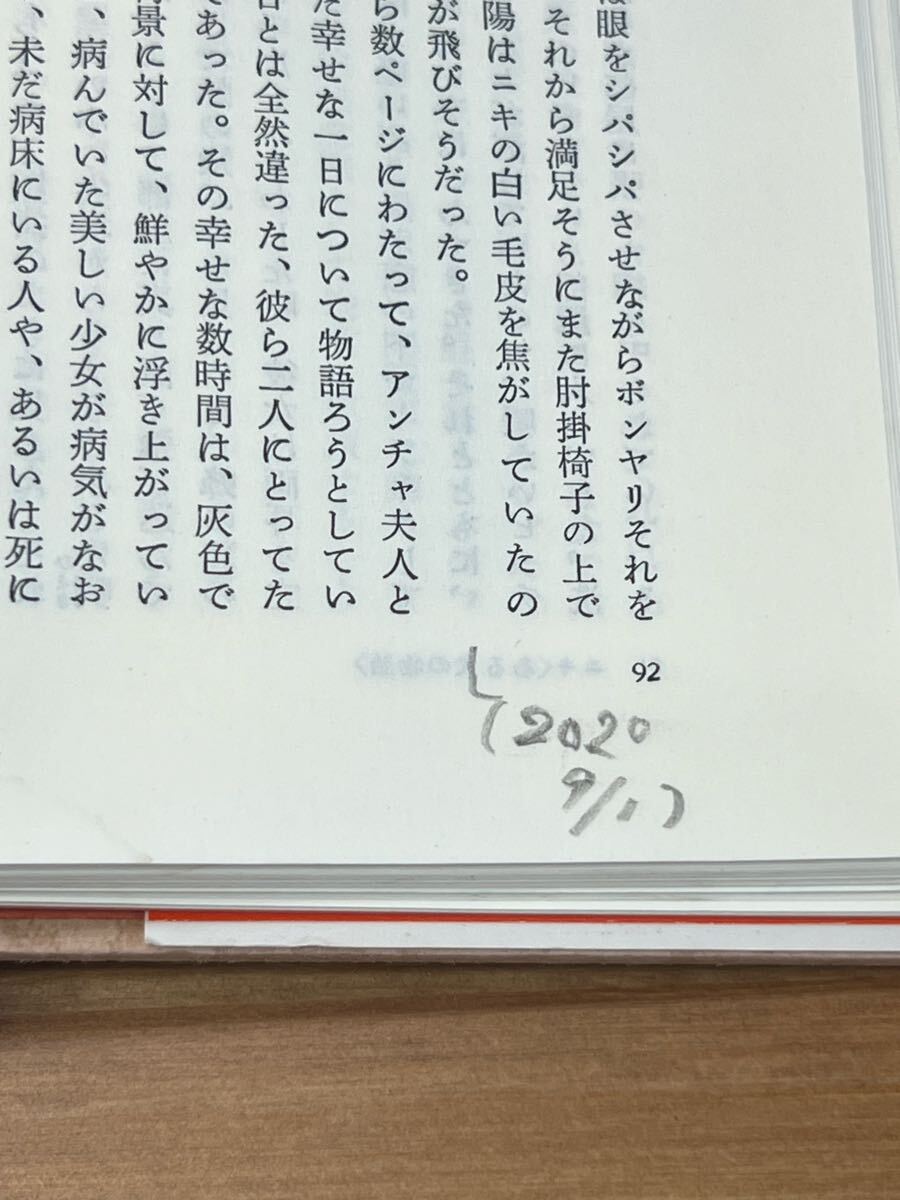 眼をシパシパさせながらボンヤリそれを
それから満足そうにまた肘掛椅子の上で
陽はニキの白い毛皮を焦がしていたの
が飛びそうだった。
ら数ページにわたって、アンチャ夫人と
た幸せな一日について物語ろうとしてい
日とは全然違った、彼ら二人にとってた
であった。その幸せな数時間は、灰色で
景に対して、鮮やかに浮き上がってい
、病んでいた美しい少女が病気がなお
、未だ病床にいる人や、あるいは死に
92
(2020
9/17